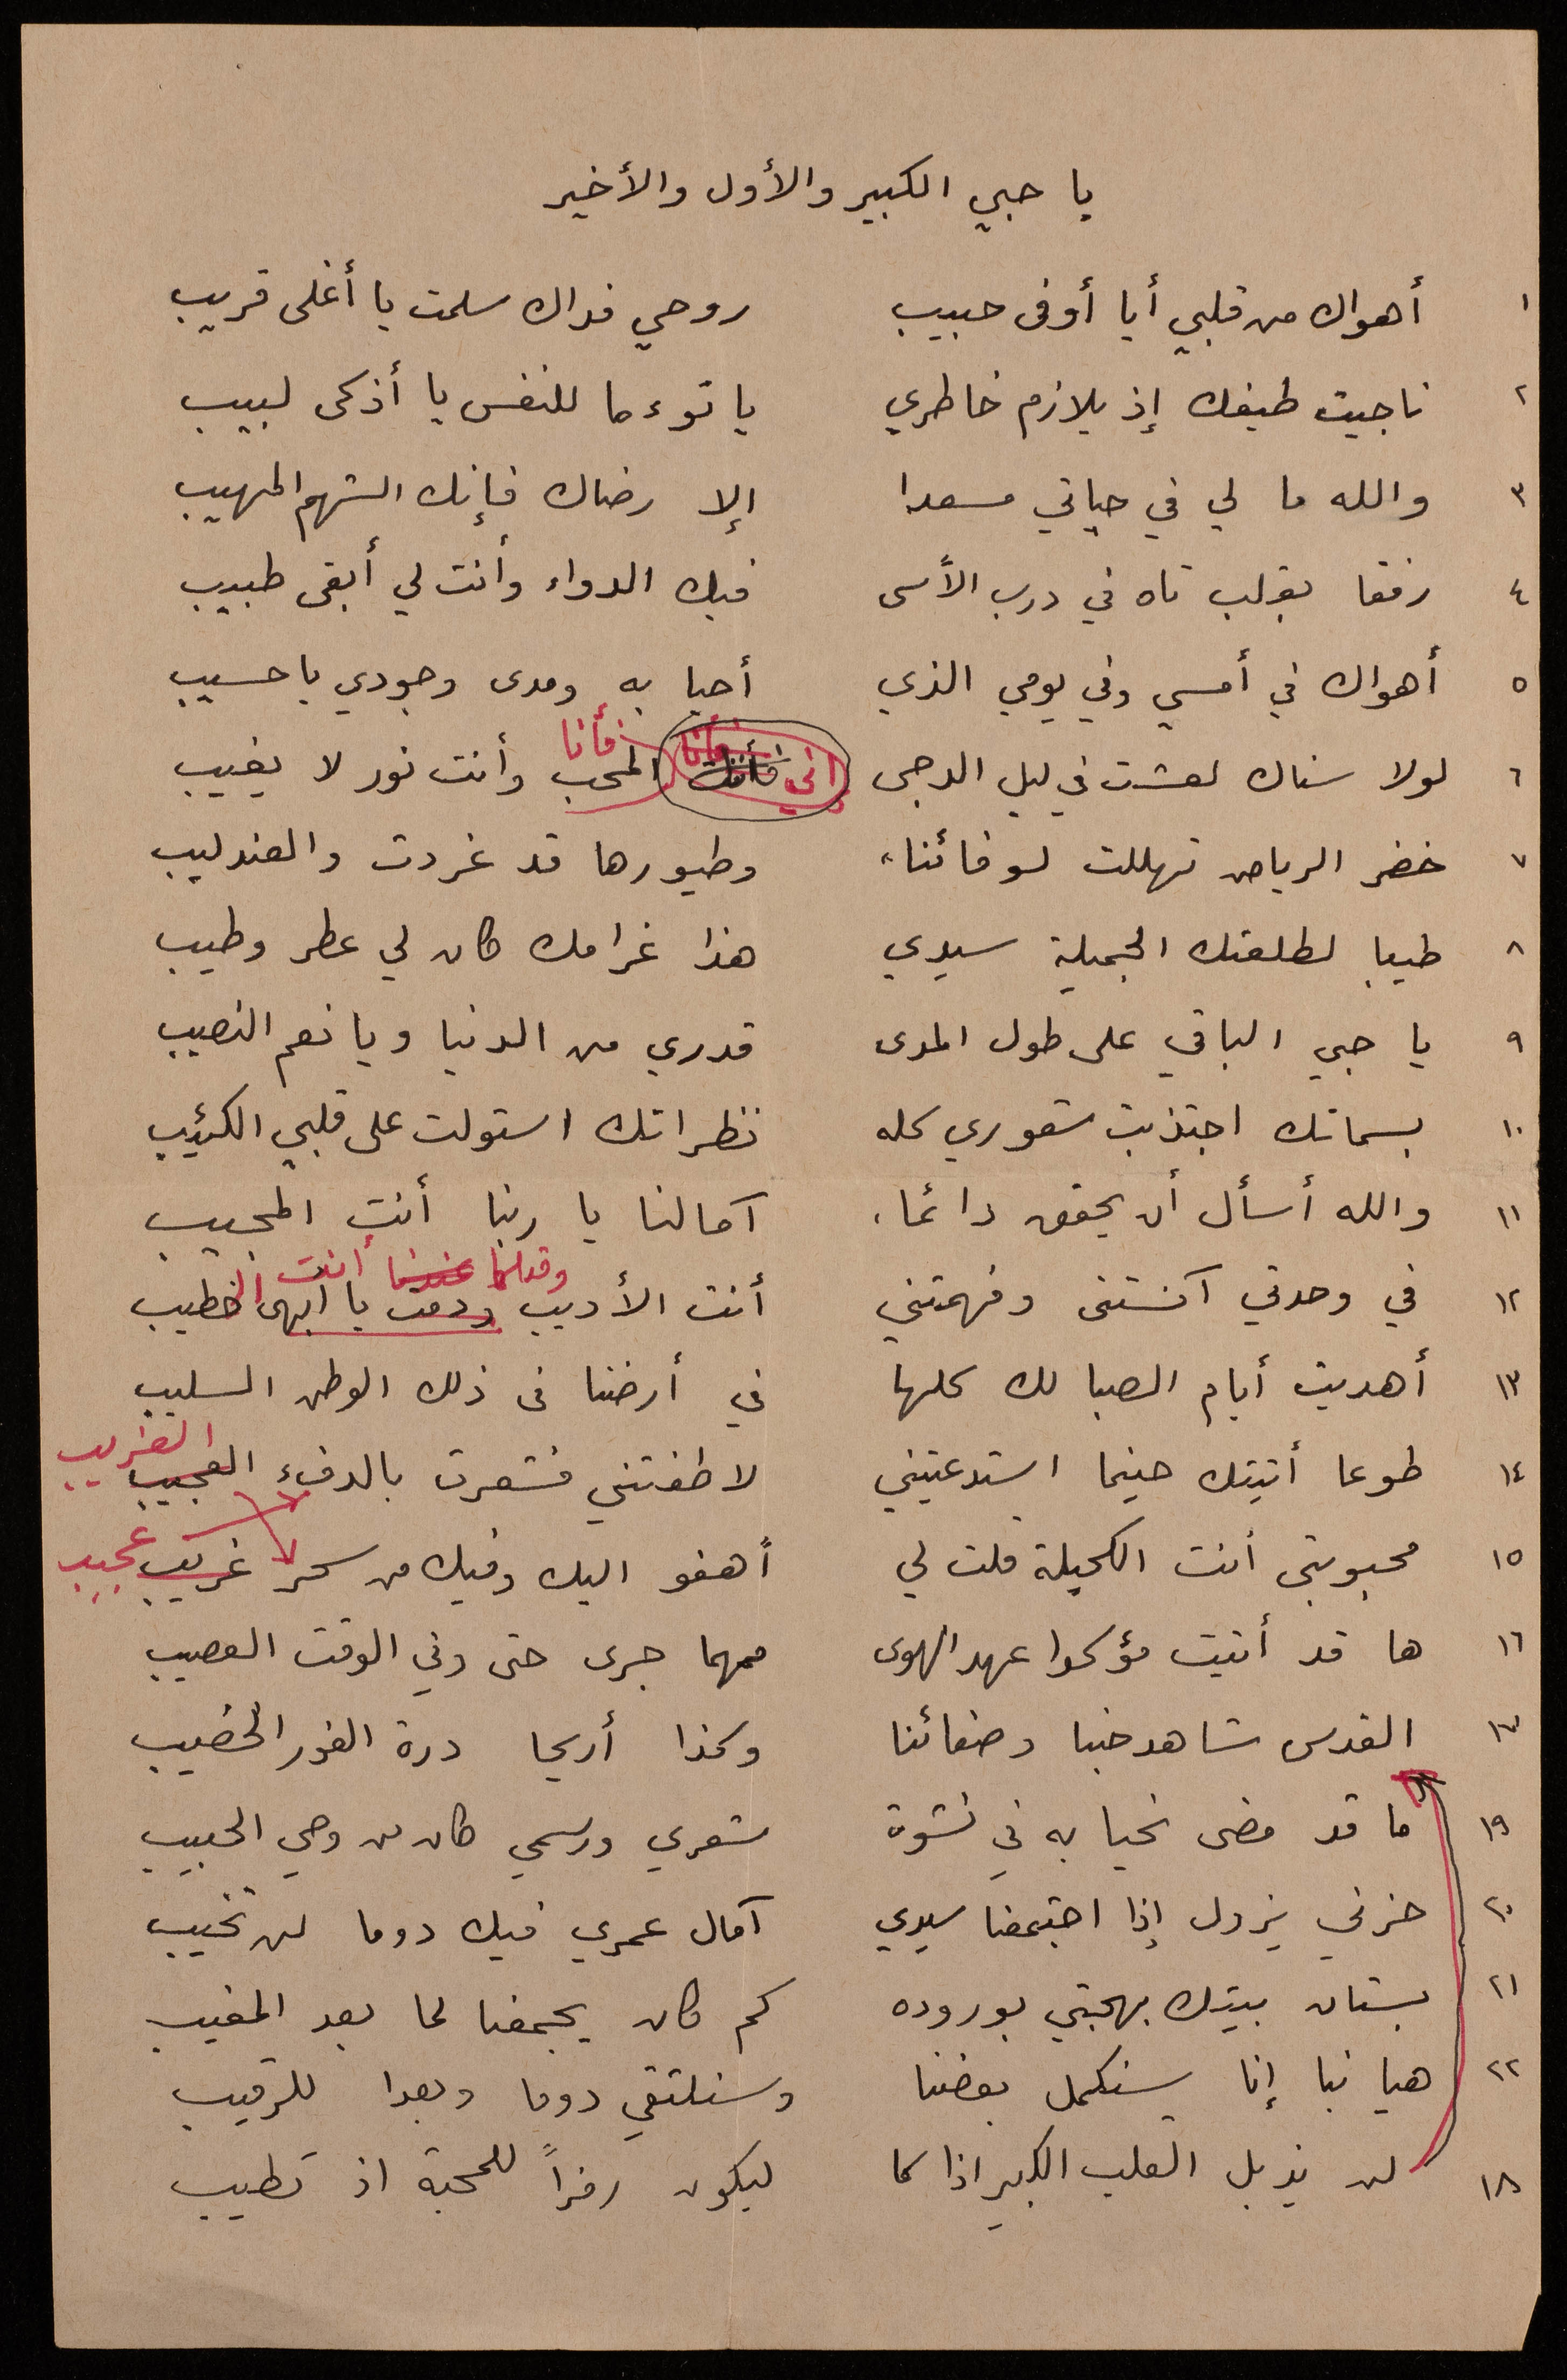 يا حبي الكبير والأول والأخير
١ أهواك من قلبي أيا أوفى حبيب روحي فداك سلمت يا أغلى قريب
٢ ناجيت طيفك إذ يلازم خاطري يا توءما للنفس يا أذكى لبيب
٣ والله ما لي في حياتي مسعدا إلا رضاك فإنك الشهم المهيب
٤ رفقا بقلب تاه في درب الأسى فيك الدواء وأنت لي أبقى طبيب
٥ أهواك في أمسي وفي يومي الذي أحيا به ومدى وجودي يا حسيب
فأنا
٦ لولا سناك لعشت في ليل الدجى إني فأنا المحب وأنت نور لا يغيب
٧ خضر الرياض تهللت لوفائنا، وطيورها قد غردت والعندليب
٨ طيبا لطلعتك الجميلة سيدي هذا غرامك كان لي عطر وطيب
٩ يا حبي الباقي على طول المدى قدري من الدنيا ويا نعم النصيب
١٠ بسماتك اجتذبت شعوري كله نظراتك استولت على قلبي الكئيب
١١ والله أسأل أن يحقق دائما، آمالنا يا ربنا أنت المجيب
أنت
١٢ في وحدتي آنستنى وفهمتني أنت الأديب ودمت يا أبهى الخطيب
١٣ أهديت أيام الصبا لك كلها في أرضنا فى ذلك الوطن السليب
الغريب
١٤ طوعا أتيتك حينما استدعيتني لاطفتني فشعرت بالدفء العجيب
١٥ محبوبتى أنت الكحيلة قلت لي أهفو اليك وفيك من سحر غريب عجيب
١٦ ها قد أتيت مؤكدا عهد الهوى مهما جرى حتى وفي الوقت العصيب
١٧ القدس شاهد حبنا وصفائنا وكذا أريحا درة الغور الخصيب
١٩ ما قد مضى نحيا به في نشوة شعري ورسمي كان من وحي الحبيب
٢٠ حزني يزول إذا اجتمعنا سيدي آمال عمري فيك دوما لن تخيب
٢١ بستان بيتك بهجتي بوروده كم كان يجمعنا لما بعد المغيب
٢٢ هيا نبا إنا سنكمل بعضنا وسنلتقي دوما وبعدا للرقيب
١٨ لن يذبل القلب الكبير اذا كما ليكون رمزاً للمحبة اذ تطيب